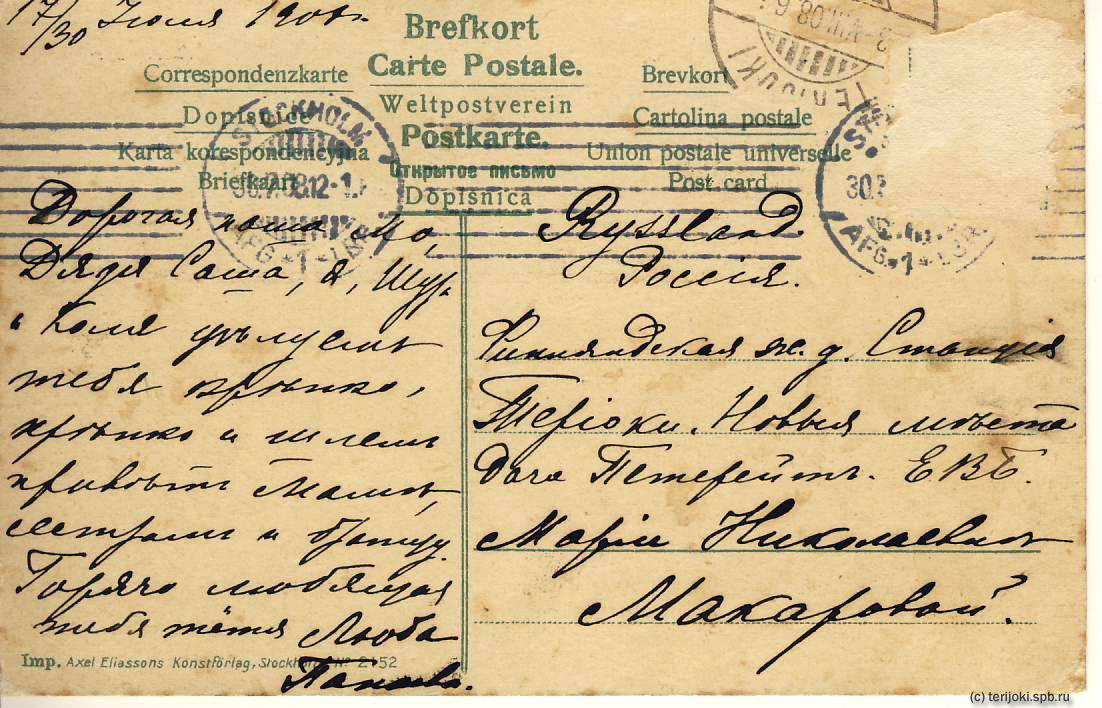 17/30 Июля 1908 г.
Brefkort
Carte Postale.
Weltpostverein
Postkarte.
Открытое письмо
Dopisnica
Correspondenzkarte
Dopisnice
Karta korespondencyjna
Briefkaart
Brevkort
Cartolina postale
Union postale universelle
Post card
TERIJOKI
STOCKHOLM
30.7.08.12-1
AFG.*1*
30.
AFG.*1*
Дорогая наша
Дядя Саша, я, Шур.
и Коля цѣлуемъ
тебя крѣпко,
крѣпко и шлемъ
привѣтъ Мамѣ,
сестрамъ и братцу.
Горячо любящая
тебя тётя Люба
Imp. Axel Eliassons Konstförlag, Stockholm Nº 2152
Ryssland.
Россія.
Финляндская ж. д. Станція
Теріоки. Новыя мѣста
Дача Петерейтъ. ЕВБ.
Маріи Николаевнѣ
Макаровой.
(c) terijoki.spb.ru